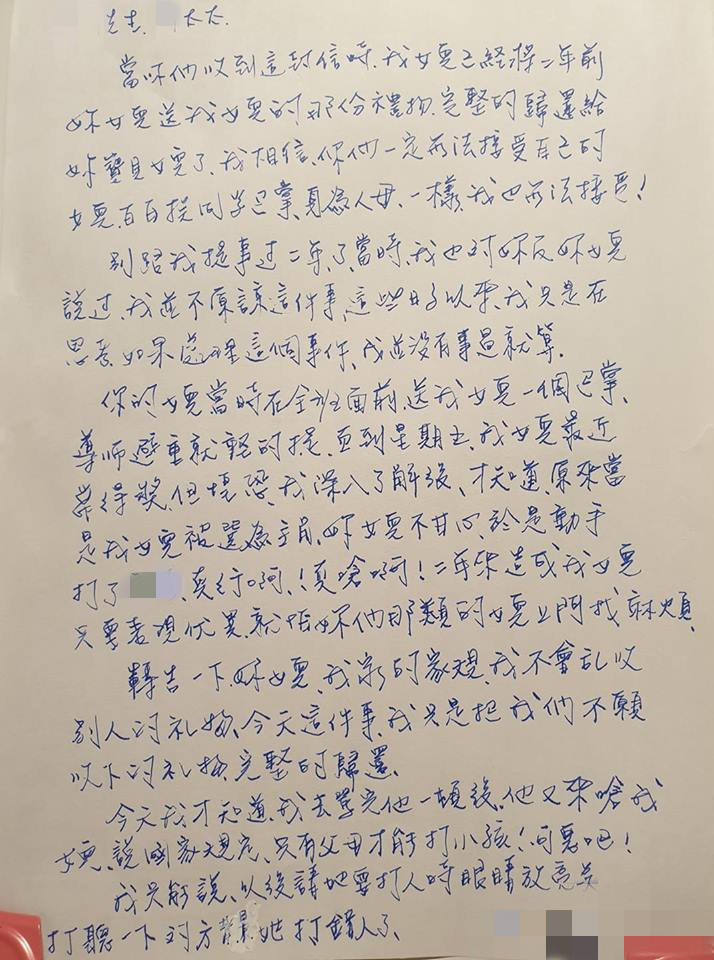 先生. 太太.
當你們收到這封信時.我女兒已經將二年前
妳女兒送我女兒的那份禮物.完整的歸還給
妳寶貝女兒了.我相信.你們一定無法接受自己的
女兒.百日挨同学巴掌.身為人母.一樣.我也無法接受!
別跟我提事过二年了.當時.我也对妳及妳女兒
說过.我並不原諒這件事.這些日子以來.我只是在
思考如果處理這個事件.我並沒有事過就算.
你的女兒當時在全班面前.送我女兒一個巴掌.
導師避重就輕的提.直到星期五.我女兒最近
常得獎.但惶恐.我深入了解後.才知道.原來當
是我女兒被選為主角.妳女兒不甘心.於是動手
打了 .真行啊.!真嗆啊!二年來造成我女兒
只要表現优異.就怕妳們那類的女兒上門找麻煩.
轉告一下.妳女兒.我家的家規.我不會乱收
別人的礼物.今天這件事.我只是把我們不願
收下的礼物.完整的歸還.
今天我才知道.我去學完他一頓後.他又來嗆我
女兒.說國家規定.只有父母才能打小孩!可惡吧!
我只能說.以後請她要打人時眼睛放亮点
打聽一下对方 .她打錯人了.